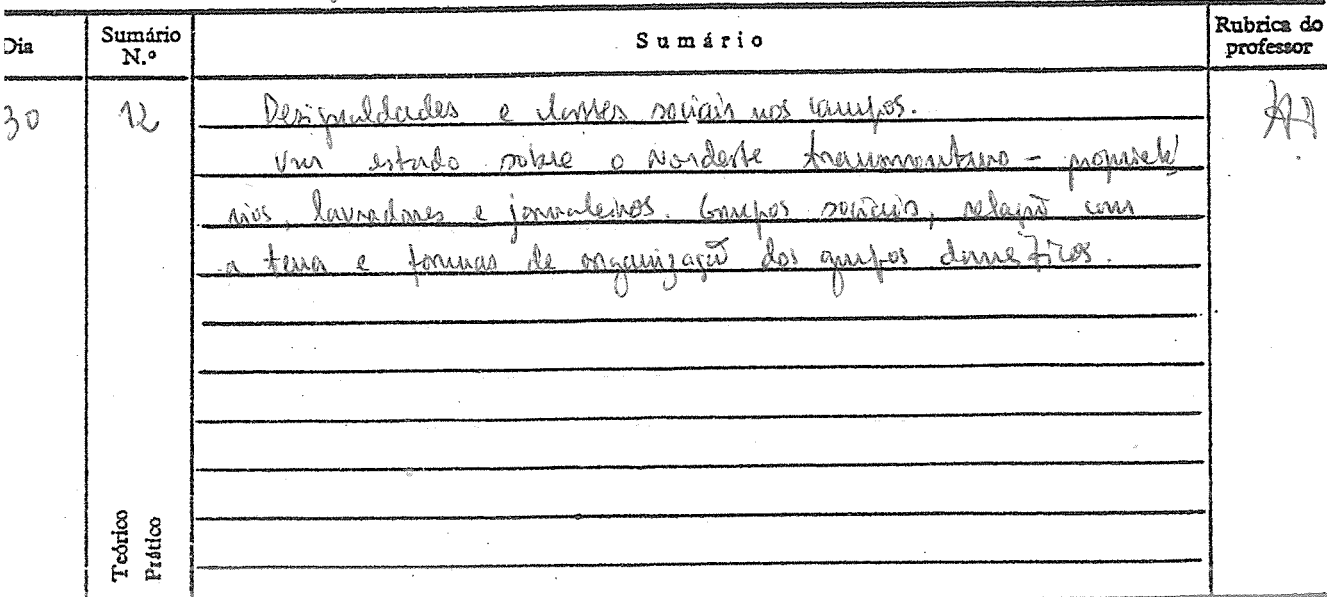 Dia Sumário N.º Sumário Rubrica do professor
30 12 Desigualdades e classes sociais nos campos.
Um estudo sobre o Nordeste transmontano - proprietá
rios, lavradores e jornaleiros. Grupos sociais, relação com
a terra e formas de organização dos grupos domésticos.
Teórico
Prático